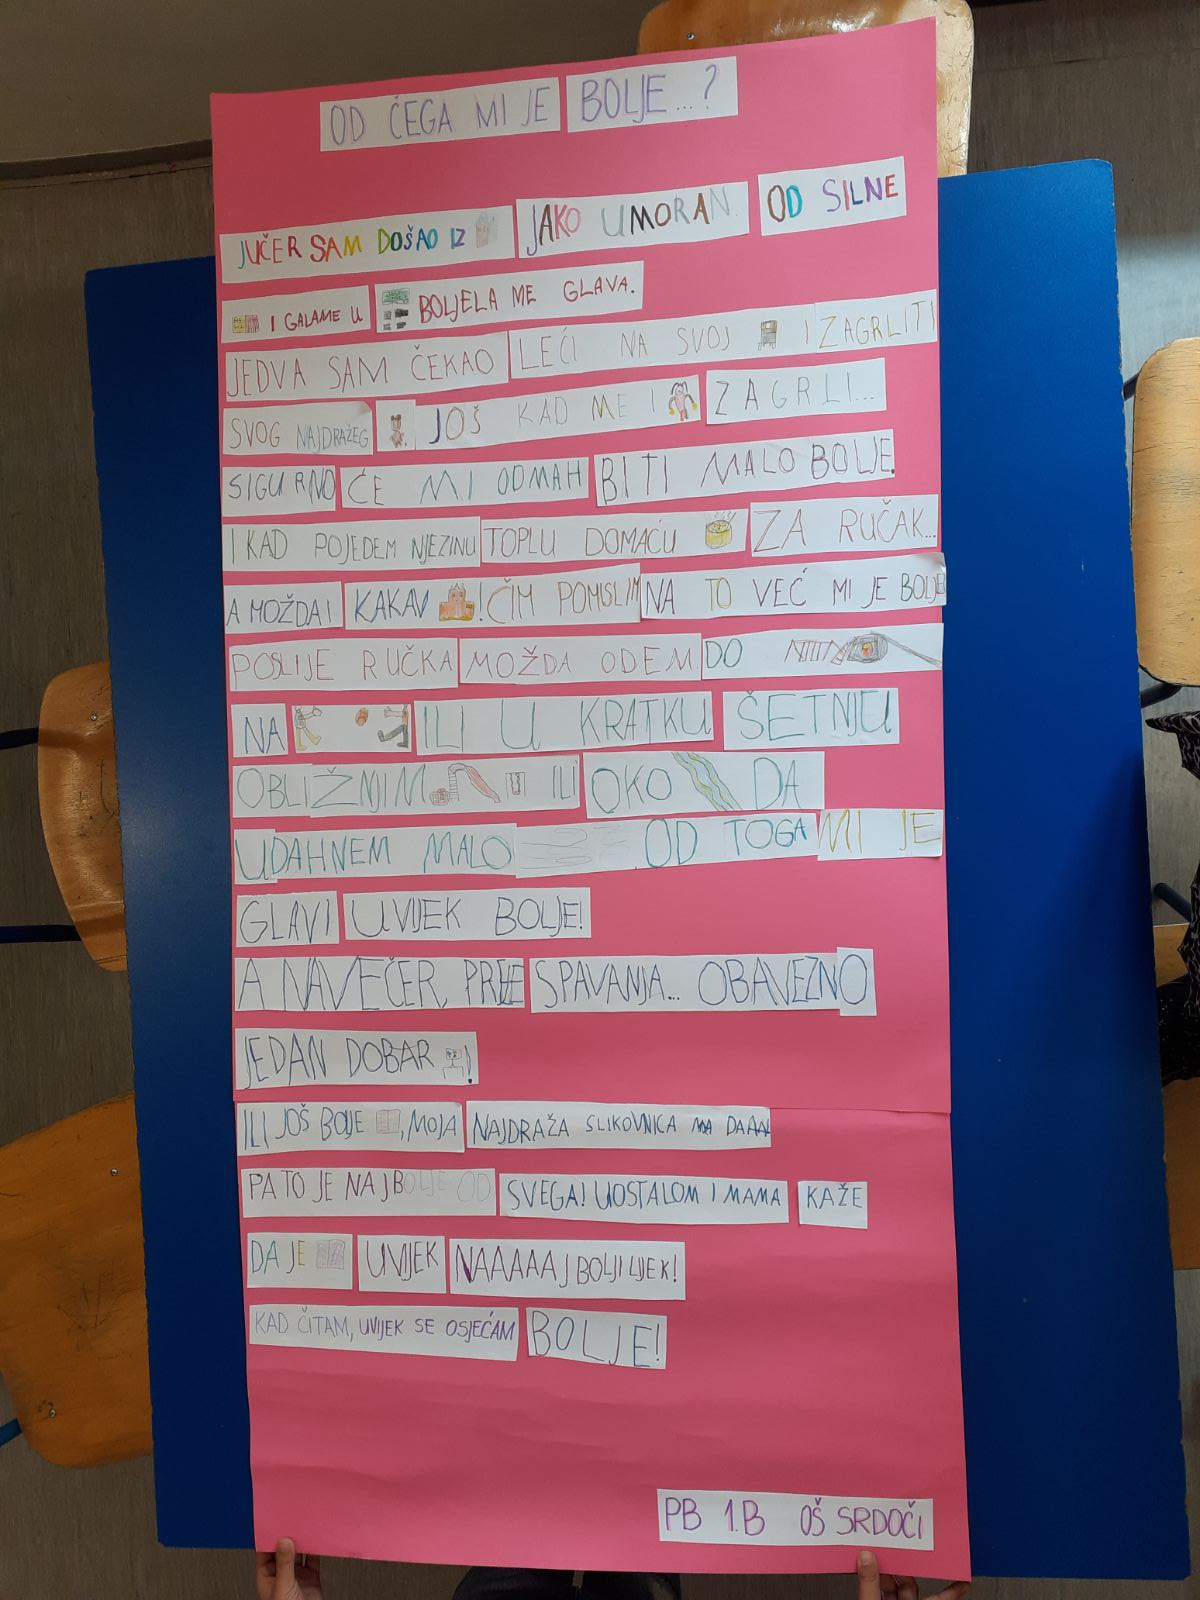 OD ČEGA MI JE BOLJE...?
JUČER SAM DOŠAO IZ JAKO UMORAN OD SILNE
I GALAME U BOLJELA ME GLAVA.
JEDVA SAM ČEKAO LEĆI NA SVOJ I ZAGRLITI
SVOG NAJDRAŽEG JOŠ KAD ME I ZAGRLI...
SIGURNO ĆE MI ODMAH BITI MALO BOLJE.
I KAD POJEDEM NJEZINU TOPLU DOMAĆU ZA RUČAK...
A MOŽDA I KAKAV ! ČIM POMISLIM NA TO VEĆ MI JE BOLJE!
POSLIJE RUČKA MOŽDA ODEM DO
NA ILI U KRATKU ŠETNJU
OBLIŽNJIM ILI OKO DA
UDAHNEM MALO OD TOGA MI JE
GLAVI UVIJEK BOLJE!
A NAVEČER, PRIJE SPAVANJA... OBAVEZNO
JEDAN DOBAR !
ILI JOŠ BOLJE , MOJA NAJDRAŽA SLIKOVNICA
PA TO JE NAJBOLJE OD SVEGA! UOSTALOM I MAMA KAŽE
DA JE UVIJEK NAAAAAJBOLJI LIJEK!
KAD ČITAM, UVIJEK SE OSJEĆAM BOLJE!
PB 1.B OŠ SRDOČI